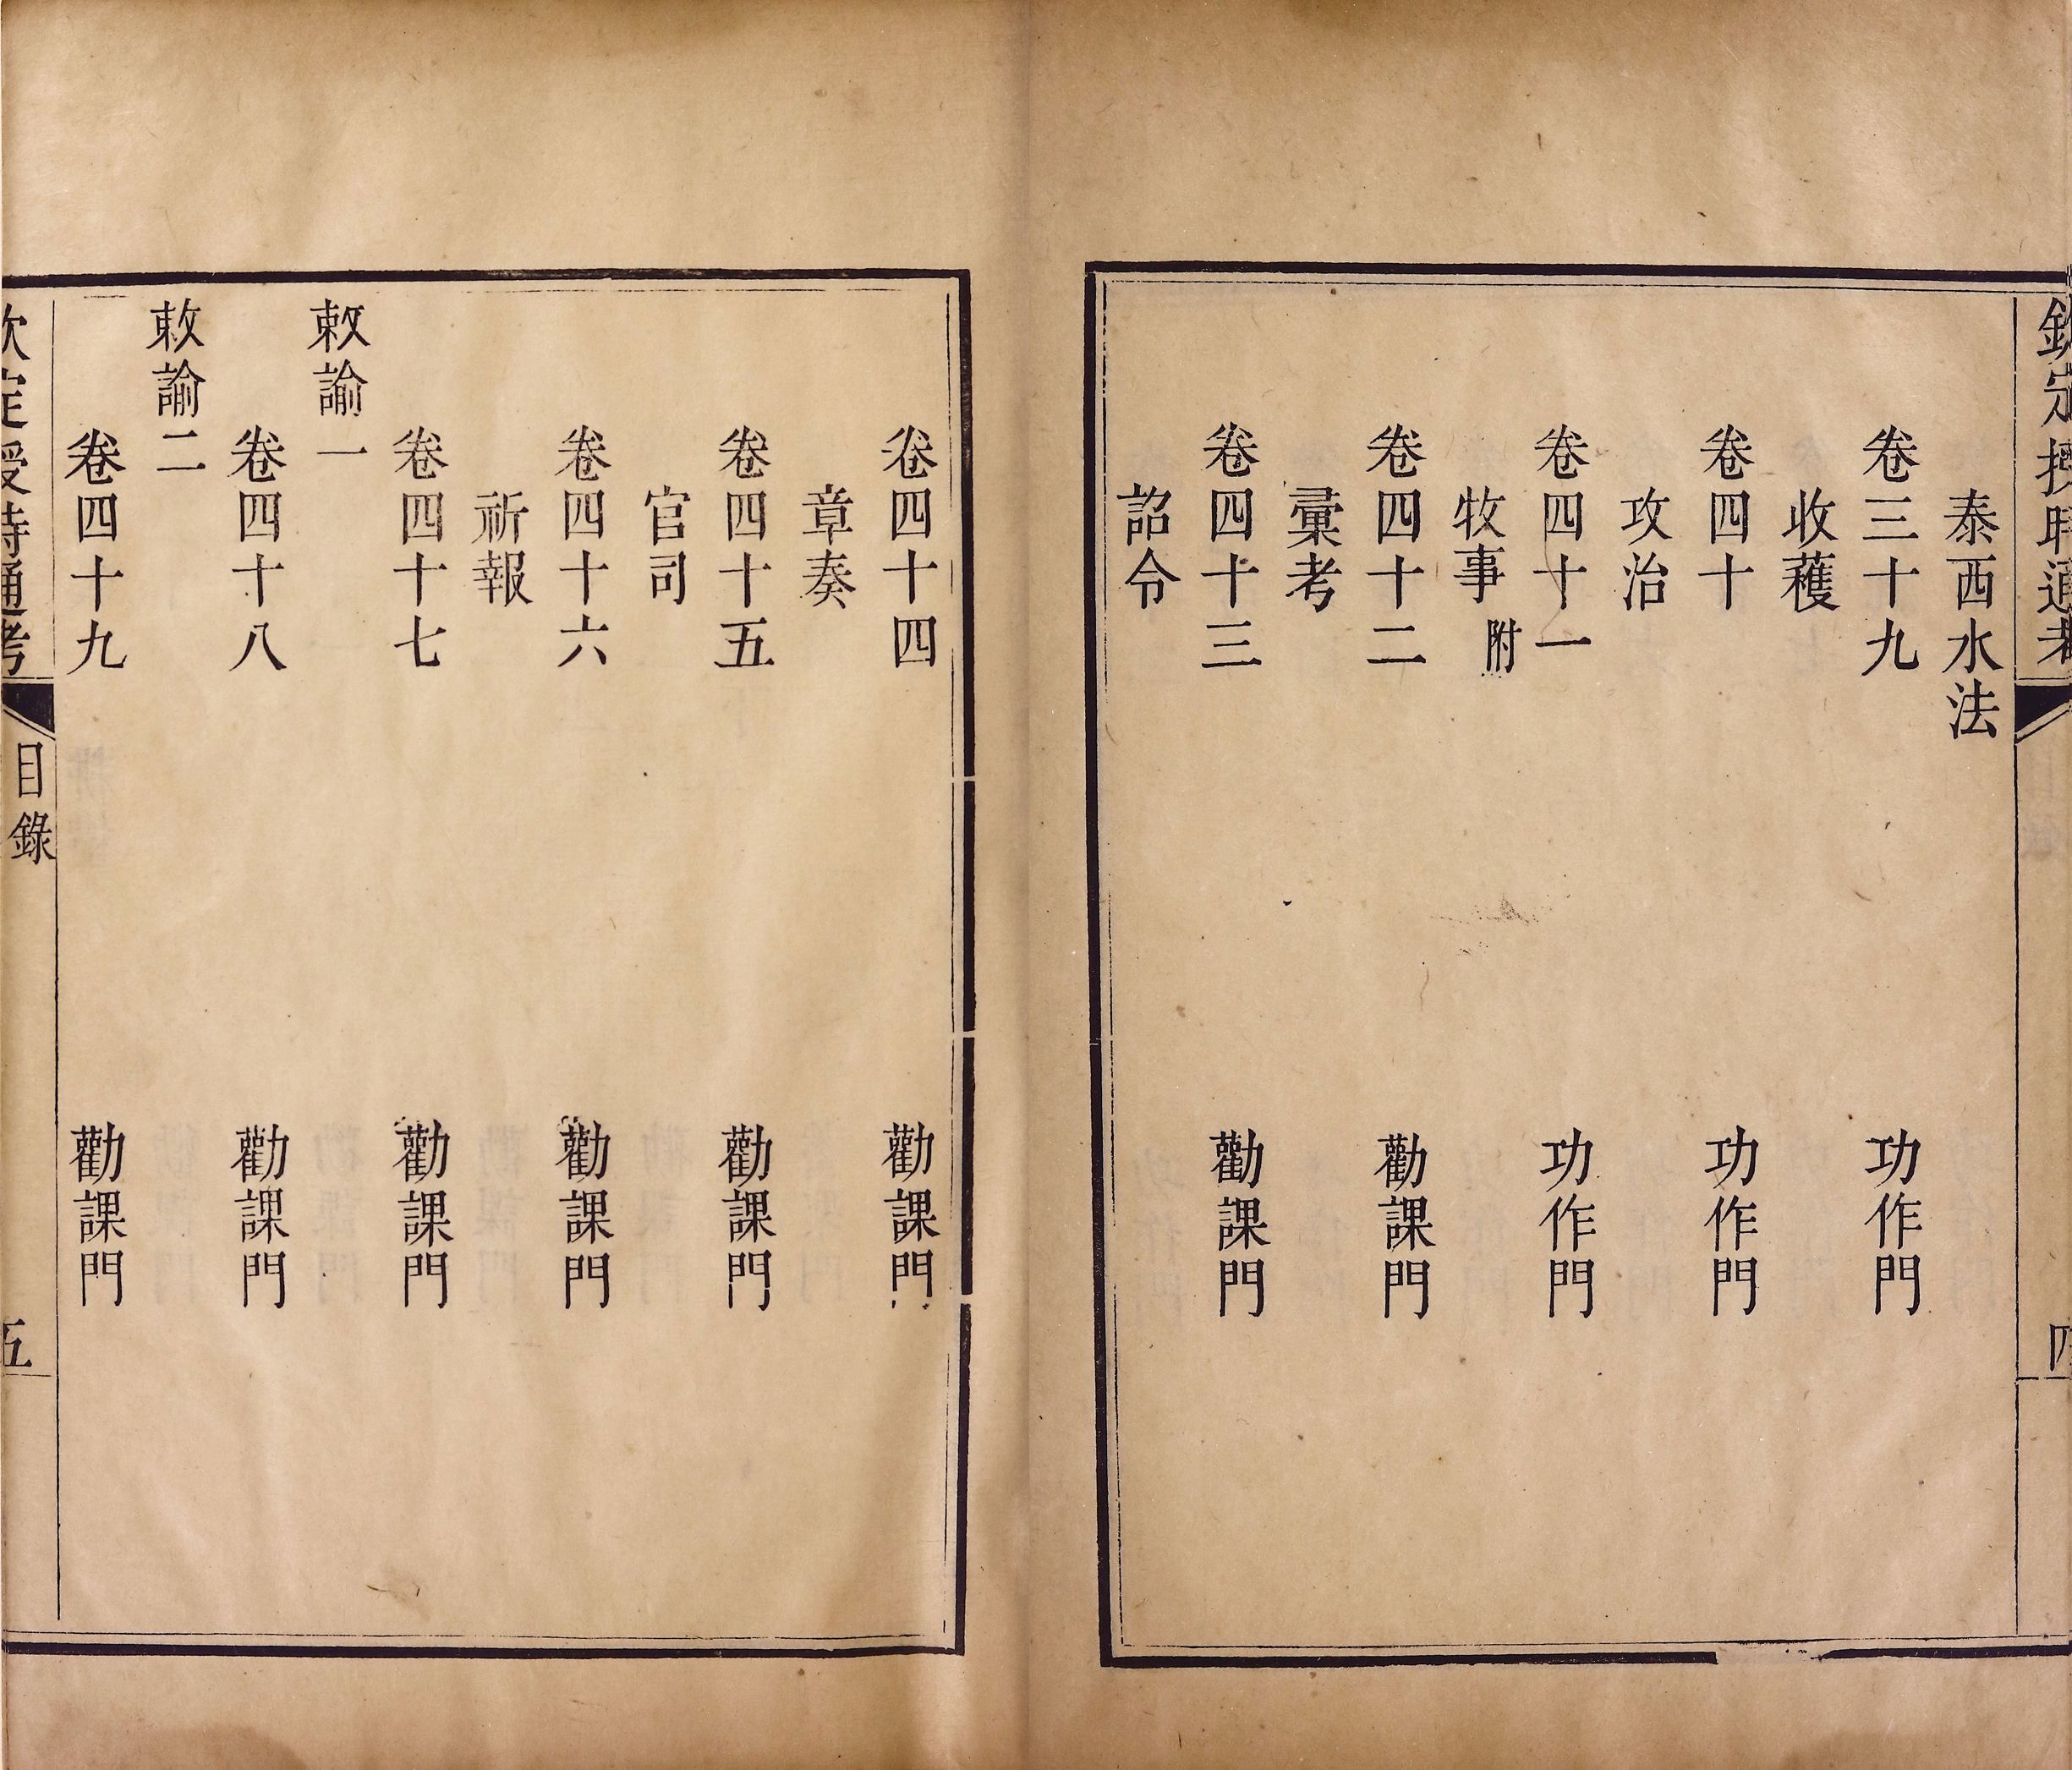 欽定授時通考
四
泰西水法
卷三十九 功作門
收穫
卷四十 功作門
攻治
卷四十一 功作門
牧事附
卷四十二 勸課門
彙考
卷四十三 勸課門
詔令
卷四十四 勸課門
章奏
卷四十五 勸課門
官司
卷四十六 勸課門
祈報
卷四十七 勸課門
敕諭一
卷四十八 勸課門
敕諭二
卷四十九 勸課門
欽定授時通考 目錄 五